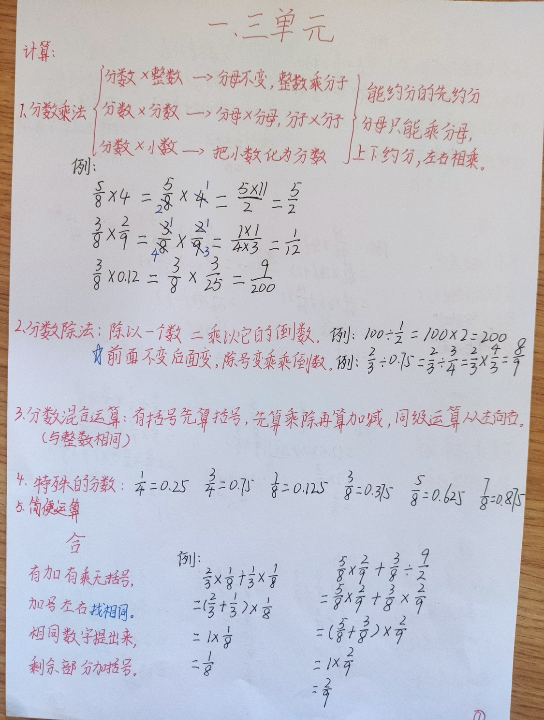 一.三单元
计算:
分数×整数→分母不变,整数乘分子
1.分数乘法 分数×分数→分母×分母,分子×分子
分数×小数→把小数化为分数
能约分的先约分
分母只能乘分母,
上下约分,左右相乘。
例:
5/8×4=5/8×4=5×1/2=5/2
2 1
3/8×2/9=3/8×2/9=1×1/4×3=1/12
1 1 4 3
3/8×0.12=3/8×3/25=9/200
2.分数除法:除以一个数二乘以它的倒数. 例:100÷1/2=100×2=200
前面不变后面变,除号变乘乘倒数. 例:2/3÷0.75=2/3÷3/4=2/3×4/3=8/9
3.分数混合运算:有括号先算括号,先算乘除再算加减,同级运算从左向右。
(与整数相同)
4.特殊的分数:1/4=0.25 3/4=0.75 1/8=0.125 3/8=0.375 5/8=0.625 7/8=0.875
5.简便运算
合
有加有乘无括号,
加号左右找相同。
相同数字提出来,
剩余部分加括号。
例:
2/3×1/8+1/3×1/8
=(2/3+1/3)×1/8
=1×1/8
=1/8
5/8×2/9+3/8÷9/2
=5/8×2/9+3/8×2/9
=(5/8+3/8)×2/9
=1×2/9
=2/9
①